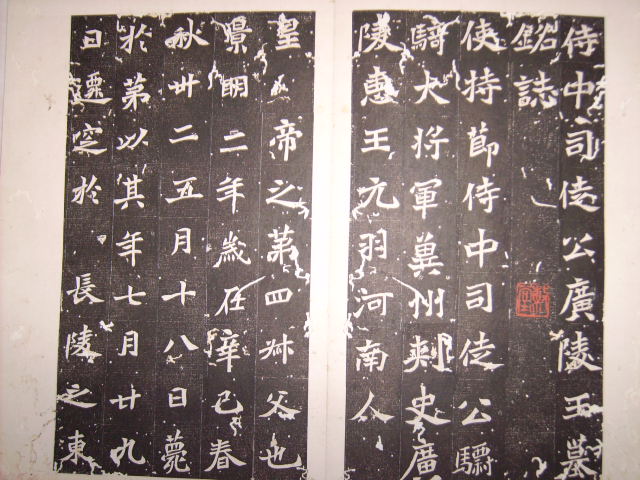 侍中司徒公廣陵王墓
銘誌
使持節侍中司徒公驃
騎大將軍冀州刺史廣
陵惠王元羽河南人
皇帝之第四叔父也
景明二年歲在辛巳春
秋卅二五月十八日薨
於第以其年七月廿九
日遷窆於長陵之東